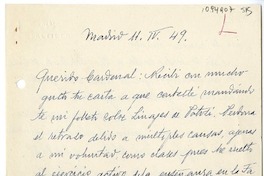 1094907
Madrid 11. IV. 49.
Querido Cardenal: Recibí con mucho
gusto tu carta a que contesté mandando
te mi folleto sobre Linajes de Potosí. Perdona
el retraso debido a multiples causas, ajenas
a mi voluntad como clases pues he vuelto
al ejercicio activo de la enseñanza en la Fa